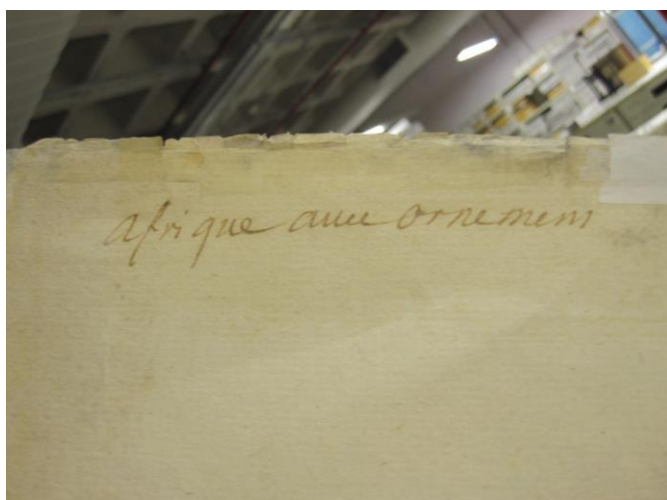 afrique avec ornemens